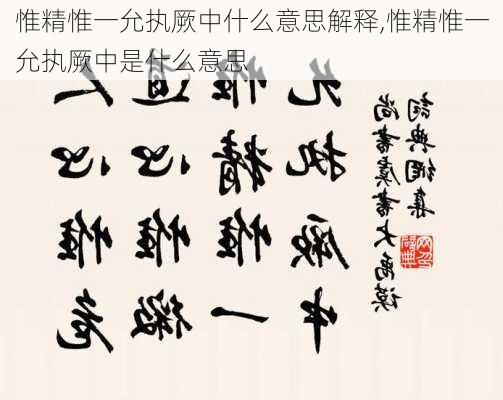 惟精惟一允执厥中什么意思解释,惟精惟一
允执厥中是什么意思
人心惟危
道心惟微
惟精惟一
允执厥中
尚書虞書大禹谟
詞典網集